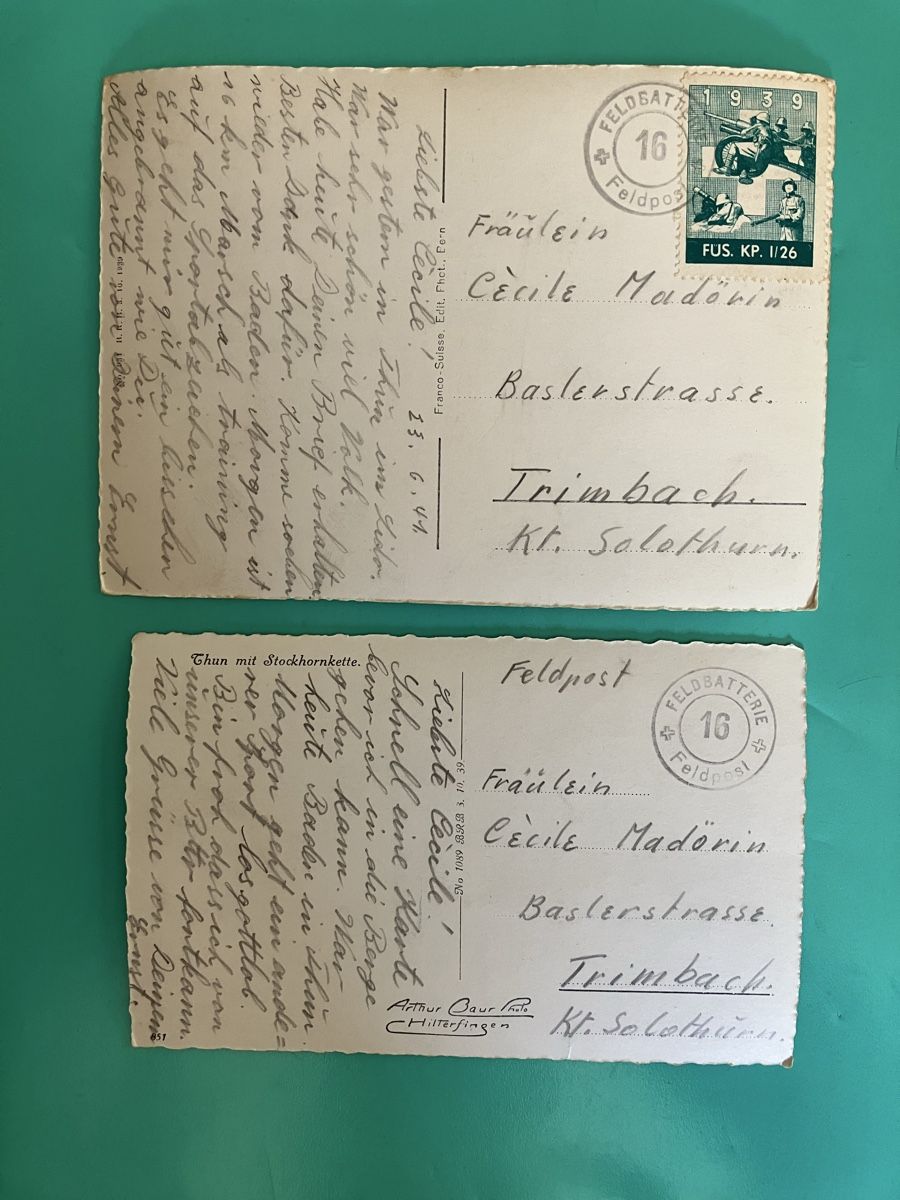 Liebste Cécile! 23. 6. 41.
War gestern in Thun im Lido.
War sehr schön viel Volk.
Habe heute Deinen Brief erhalten.
Besten Dank dafür. Komme soeben
wieder vom Baden. Morgen ist
16 km Marsch als training
auf das Sportabzeichen.
Es geht mir gut ein bisschen
angebrannt wie Du.
Alles Gute von Deinem Ernst
Franco-Suisse, Edit. Phot., Bern
FELDBATTE
16
Feldpost
1939
FÜS. KP. I/26
Fräulein
Cècile Madörin
Baslerstrasse.
Trimbach.
Kt. Solothurn.
Thun mit Stockhornkette.
Liebste Cécile!
Schnell eine Karte
bevor ich in die Berge
gehen kann. War
heute Baden in Thun.
Morgen geht ein ande=
rer Sport los gottlob
Bin froh dass ich von
unserer Bttr fortkann.
Viele Grüsse von Deinem
Ernst.
651
No 1089 BRB 3. 10. 39
Arthur Baur Photo
Hilterfingen
Feldpost
FELDBATTERIE
16
Feldpost
Fräulein
Cècile Madörin
Baslerstrasse.
Trimbach.
Kt. Solothurn.